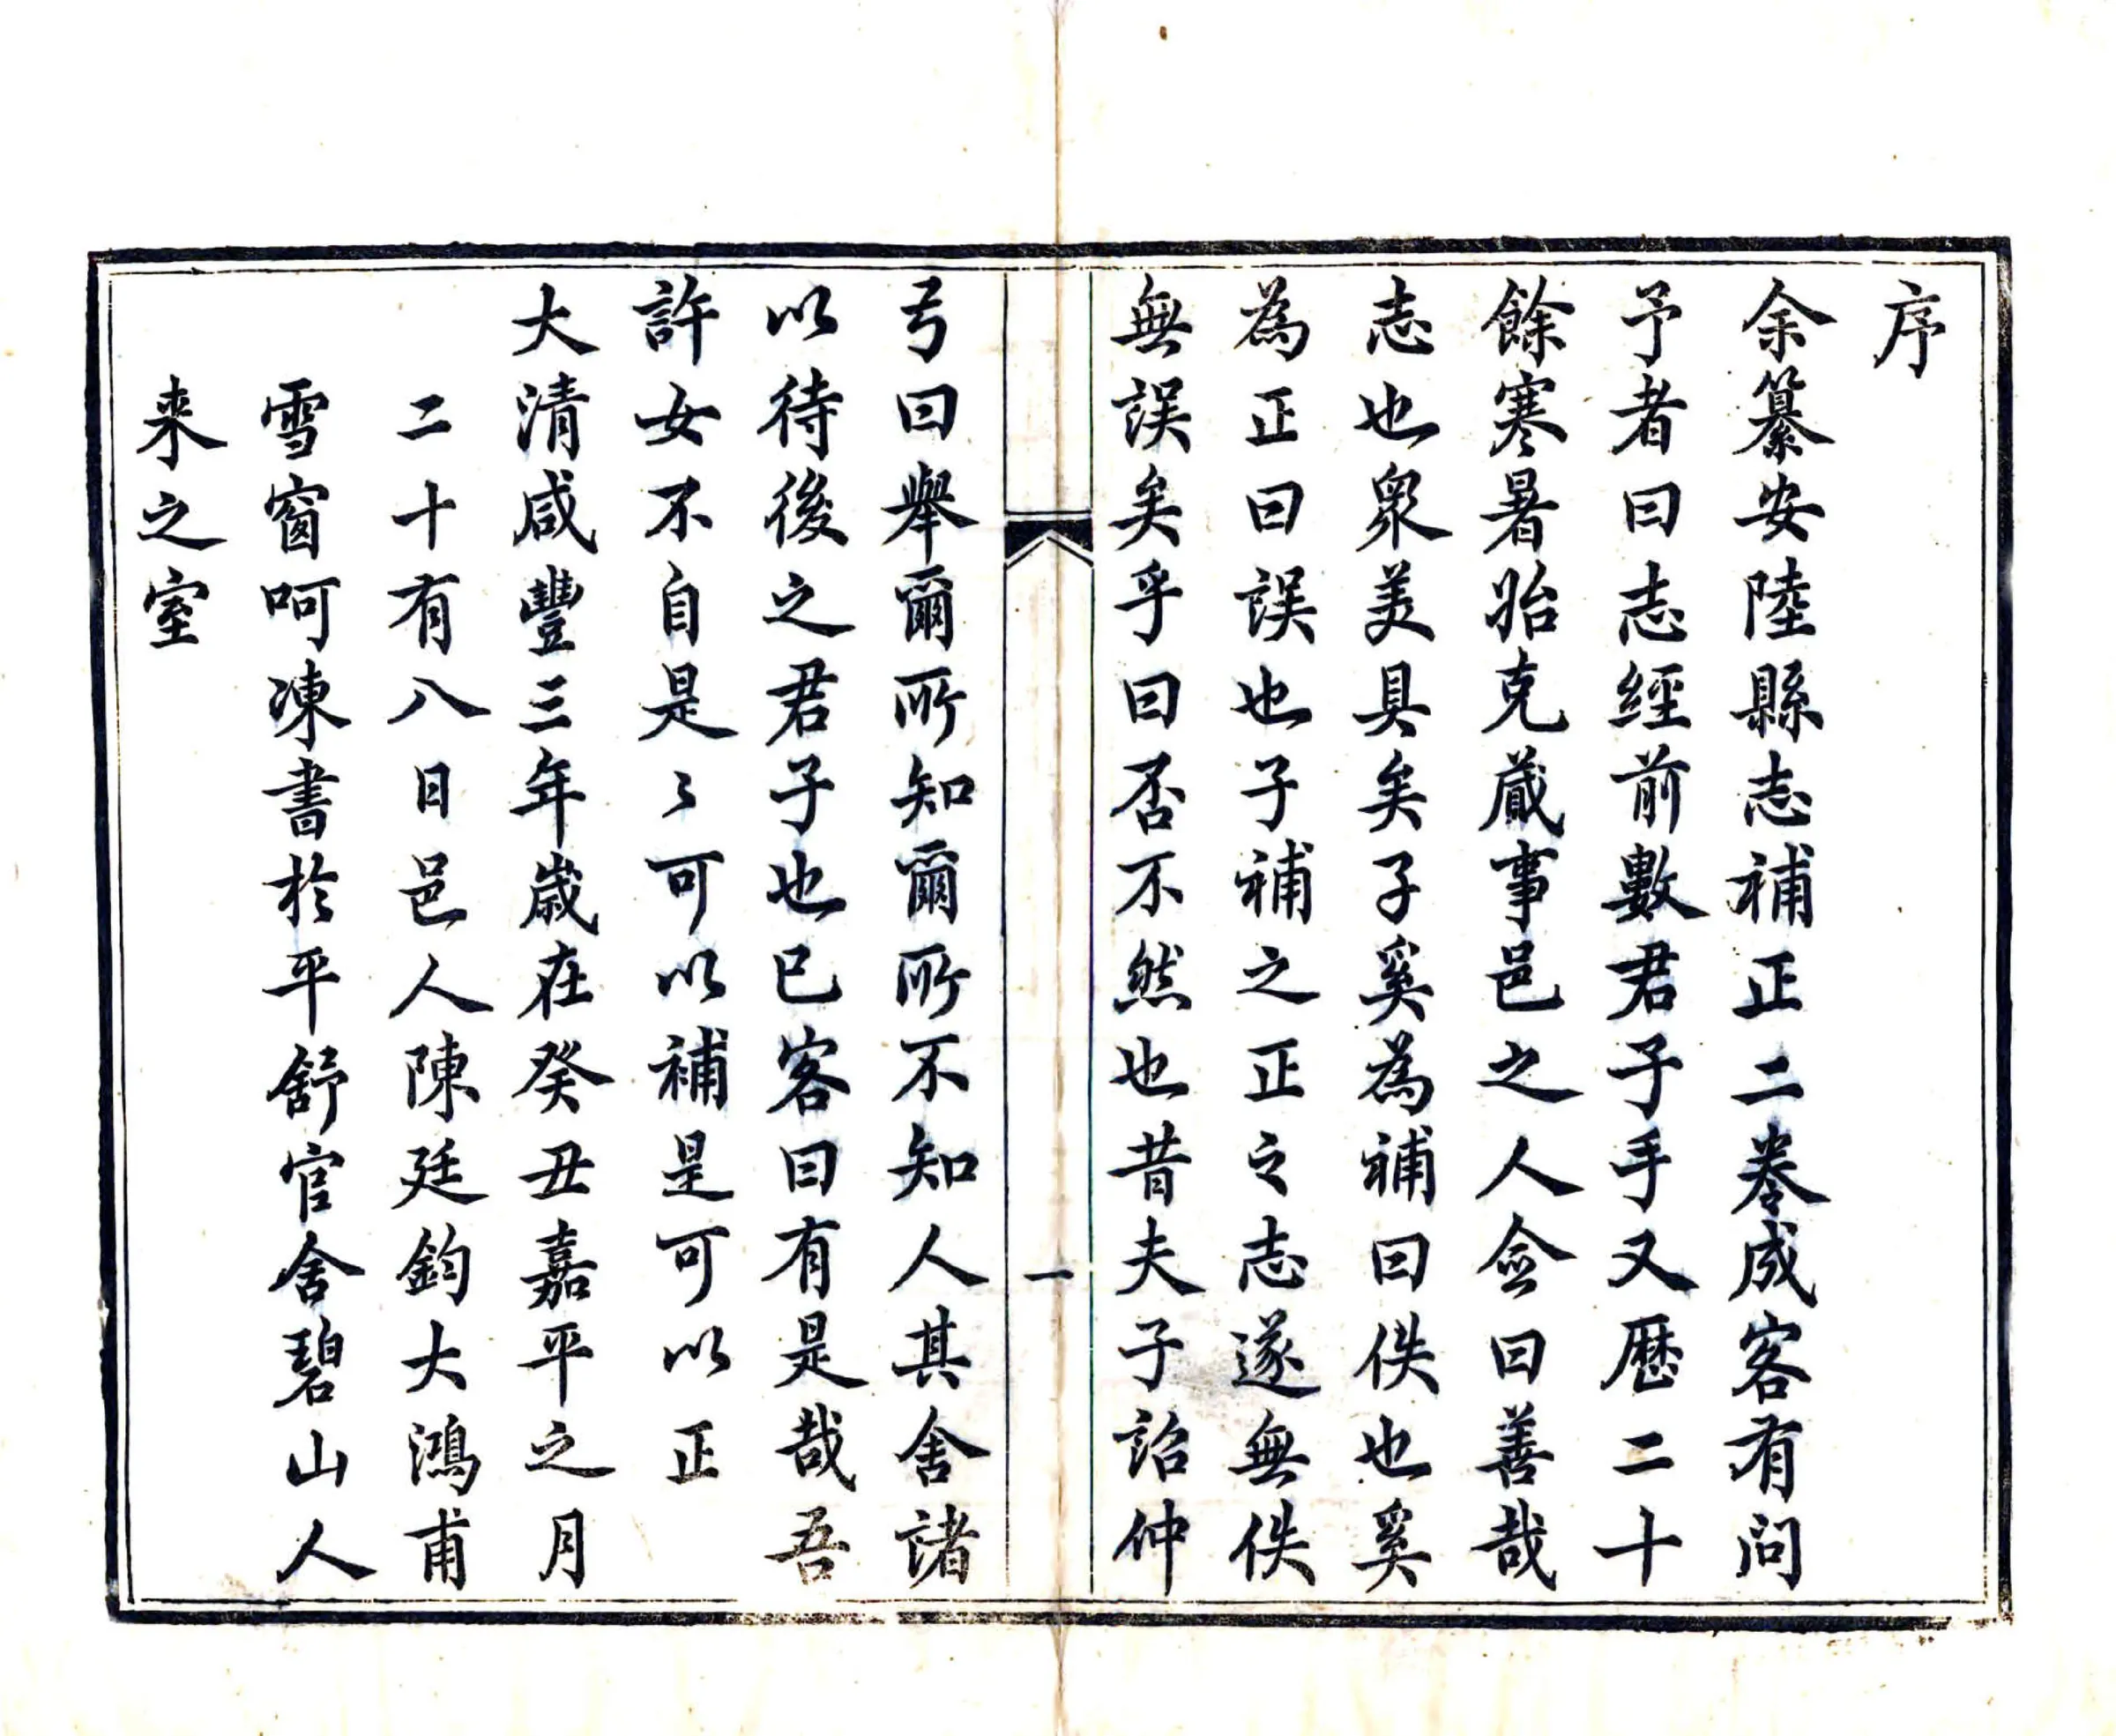 序
余纂安陸縣志補正二卷成客有问
予者曰志經前數君子手又歷二十
餘寒暑始克蕆事邑之人僉曰善哉
志也衆美具矣子奚為補曰佚也奚
為正曰誤也子補之正之志遂無佚
無誤矣乎曰否不然也昔夫子詔仲
一
弓曰舉爾所知爾所不知人其舍諸
以待後之君子也已客曰有是哉吾
許女不自是〻可以補是可以正
大清咸豐三年歲在癸丑嘉平之月
二十有八日邑人陳廷鈞大鴻甫
雪窗呵凍書於平舒官舍碧山人
来之室